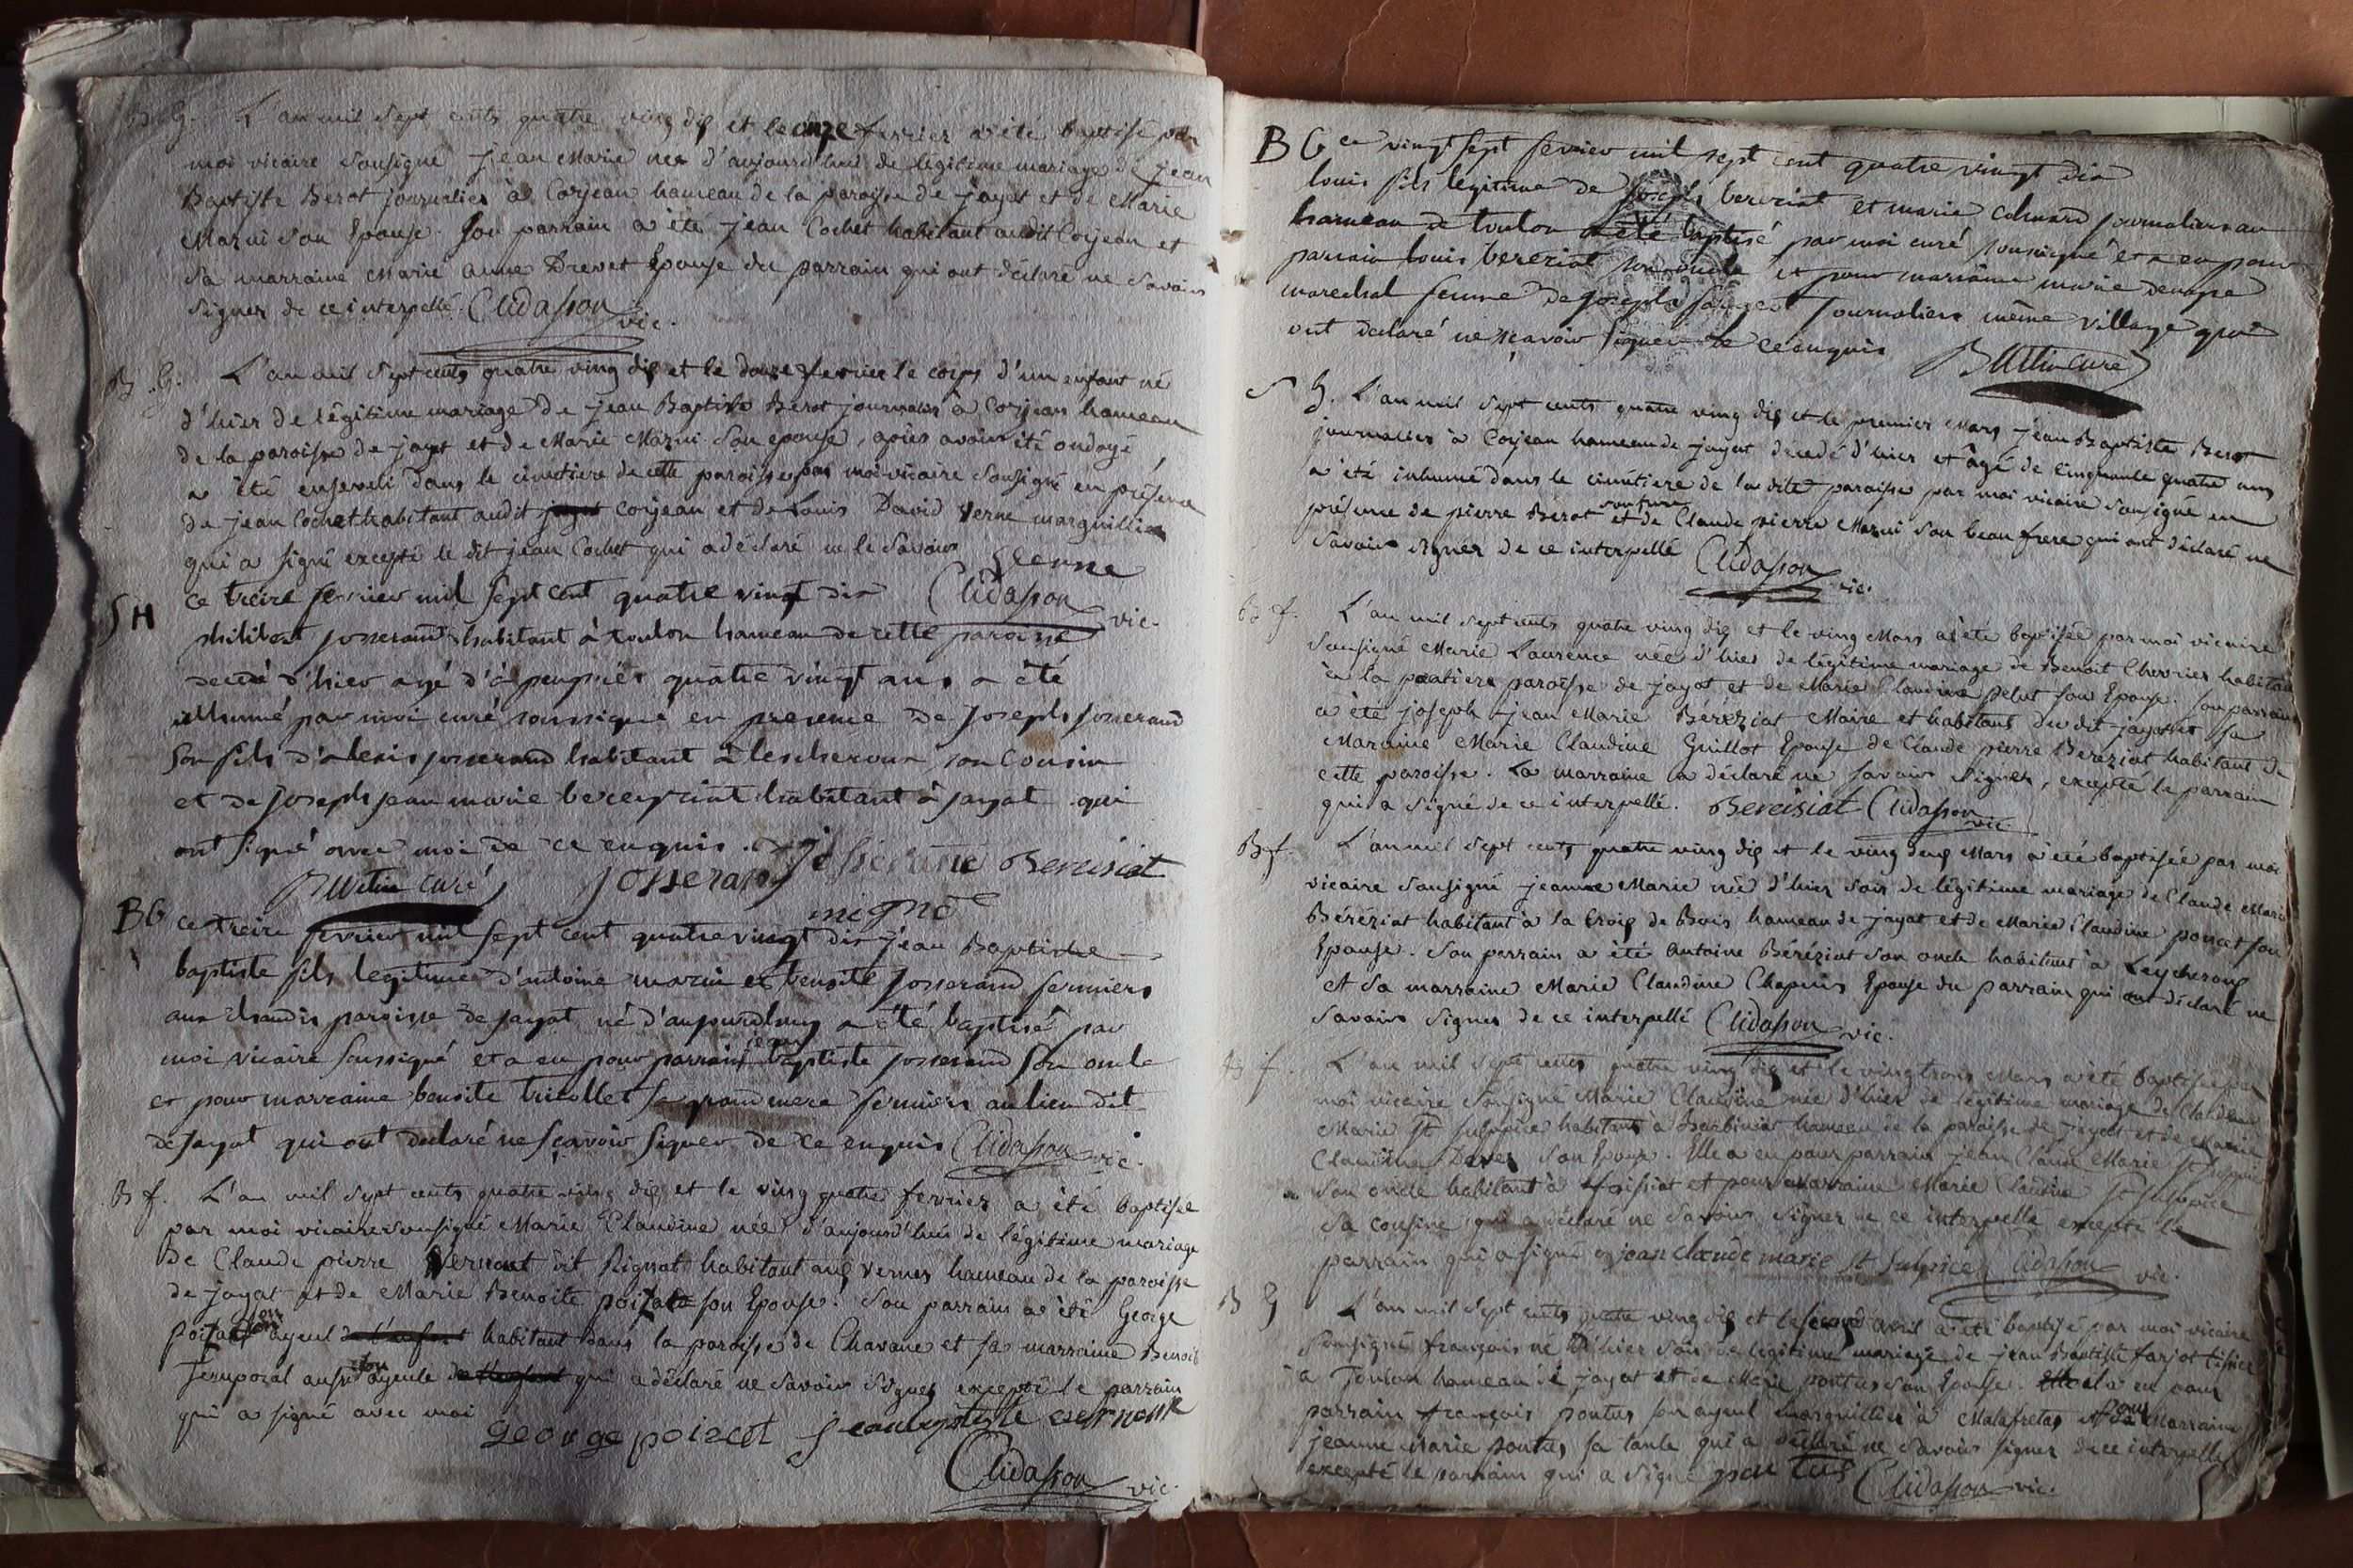 B G. L'an mil sept cents quatre ving dix et le onze fevrier a été baptisé par
moi vicaire sousigné jean Marie née d'aujourd'hui de légitime mariage de jean
Baptiste Berot journalier à Corjean hameau de la paroisse de jayat et de Marie
Mazui son Epouse. Son parrain a été jean Cochet habitant audit Corjean et
sa marraine Marie Anne Drevet Epouse du parrain qui ont déclaré ne savoir
signer de ce interpellé. Clidasson vic.
B. G. L'an mil sept cents quatre ving dix et le douze fevrier le corps d'un enfant né
d'hier de légitime mariage de jean Baptiste Berot journalier à Corjean hameau
de la paroisse de jayat et de Marie Mazui son epouse, après avoir été ondoyé,
a été enseveli dans le cimetiere de cette paroisse par moi vicaire sousigné en présence
de jean Cochet habitant audit Corjean et de Louis David Verne marguillier
qui a signé excepté le dit jean Cochet qui a déclaré ne le savoir Verne
SH ce treize fevrier mil sept cent quatre vingt dix Clidasson vic.
philibert josserand habitant à toulon hameau de cette paroisse
decedé d'hier agé d'à peuprés quatre vingt ans a été
inhumé par moi curé soussigné en presence de joseph josserand
son fils d'alexis josserand habitant à lescheroux son cousin
et de joseph jean marie bereyziat habitant à jayat qui
ont signé avec moi de ce enquis. josserand Bereisiat
curé josserand
BG ce treize fevrier mil sept cent quatre vingt dix jean Baptiste
baptiste fils legitime d'antoine mazui et benoite josserand fermiers
aux chaudis paroisse de jayat né d'aujourdhuy a été baptisé par
moi vicaire soussigné et a eu pour parrain jean baptiste josserand son oncle
et pour marraine benoite tricollet sa grand mere fermiers au lieu dit
de jayat qui ont declaré ne sçavoir signer de ce enquis Clidasson vic.
B f. L'an mil sept cents quatre ving dix et le ving quatre fevrier a été baptisée
par moi vicaire sousigné Marie Claudine née d'aujourd'hui de légitime mariage
de Claude pierre Vernout dit Pignat habitant aux Vernes hameau de la paroisse
de jayat et de Marie Benoite poizat son Epouse. Son parrain a été George
poizat son ayeul de l'enfant habitant dans la paroisse de Chavane et sa marraine Benoite
Temporal aussi son ayeule de l'enfant qui a déclaré ne savoir signer excepté le parrain
qui a signé avec moi
george poizat jean baptiste
Clidasson vic.
B G ce vingt sept fevrier mil sept cent quatre vingt dix
louis fils legitime de joseph bereziat et marie colmard journaliers au
hameau de toulon a été baptisé par moi curé soussigné et a eu pour
parrain louis bereziat son oncle et pour marraine marie denise
marechal femme de joseph journaliers même village qui
ont declaré ne sçavoir signer de ce enquis curé
S G. L'an mil sept cents quatre ving dix et le premier Mars jean Baptiste Berot
journalier à Corjean hameau de jayat décedé d'hier et âgé de cinquante quatre ans
a été inhumé dans le cimétiere de la dite paroisse par moi vicaire sousigné en
présence de pierre Berot son frere et de Claude pierre Mazui son beau frere qui ont déclaré ne
savoir signer de ce interpellé Clidasson vic.
B f. L'an mil sept cents quatre ving dix et le ving Mars a été baptisée par moi vicaire
sousigné Marie Laurence née d'hier de légitime mariage de Benoit Chevrier habitant
à la paroisse de jayat et de Marie Claudine pelut son Epouse. Son parrain
a été joseph jean Marie Béréziat Maire et habitant du dit jayat et sa
Maraine Marie Claudine Guillot Epouse de Claude pierre Bereziat habitant de
cette paroisse. La marraine a déclaré ne savoir signer, excepté le parrain
qui a signé de ce interpellé. Bereisiat Clidasson vic.
B f. L'an mil sept cents quatre ving dix et le ving deux Mars a été baptisée par moi
vicaire sousigné jeanne Marie née d'hier soir de légitime mariage de Claude Marie
Béréziat habitant à la Croix de Bois hameau de jayat et de Marie Claudine poncet son
Epouse. Son parrain a été Antoine Béréziat son oncle habitant à Leycheroux
et sa marraine Marie Claudine Chapuis Epouse du parrain qui ont déclaré ne
savoir signer de ce interpellé Clidasson vic.
B f. L'an mil sept cents quatre ving dix et le ving trois Mars a été baptisée par
moi vicaire sousigné Marie Claudine née d'hier de légitime mariage de Claude
Marie St Sulpice habitant à hameau de la paroisse de jayat et de Marie
Claudine son Epouse. Elle a eu pour parrain jean Claude Marie St Sulpice
son oncle habitant à foissiat et pour Marraine Marie Claudine St Sulpice
sa cousine qui a déclaré ne savoir signer de ce interpellé excepté le
parrain qui a signé jean claude marie St Sulpice Clidasson vic.
B G L'an mil sept cents quatre ving dix et le second avril a été baptisé par moi vicaire
sousigné françois né d'hier soir de légitime mariage de jean Baptiste farjot tissier
à Toulon hameau de jayat et de Marie pontus son Epouse. Il a eu pour
parrain françois pontus son ayeul marguillier à Malafretaz et pour Marraine
jeanne Marie pontus sa tante qui a déclaré ne savoir signer de ce interpellé
excepté le parrain qui a signé pon tus Clidasson vic.